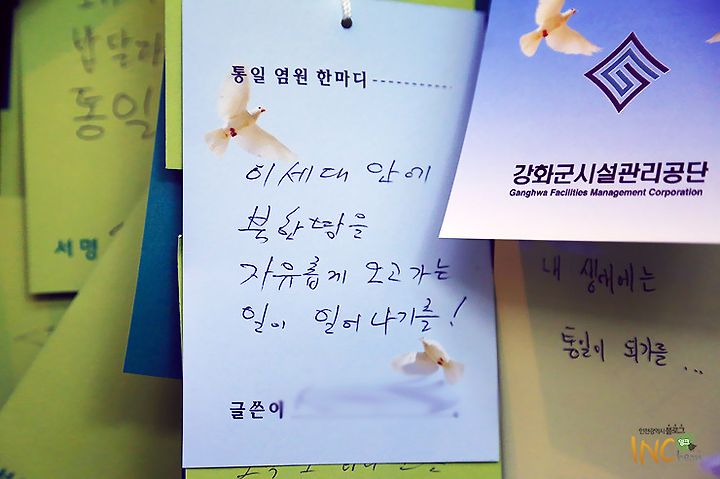 밥 달라
통일
서명
통일 염원 한마디
이 세대 안에
북한땅을
자유롭게 오고가는
일이 일어나기를!
글쓴이
강화군시설관리공단
Ganghwa Facilities Management Corporation
내 생애에는
통일이 되기를...
인천광역시블로그
INCheon